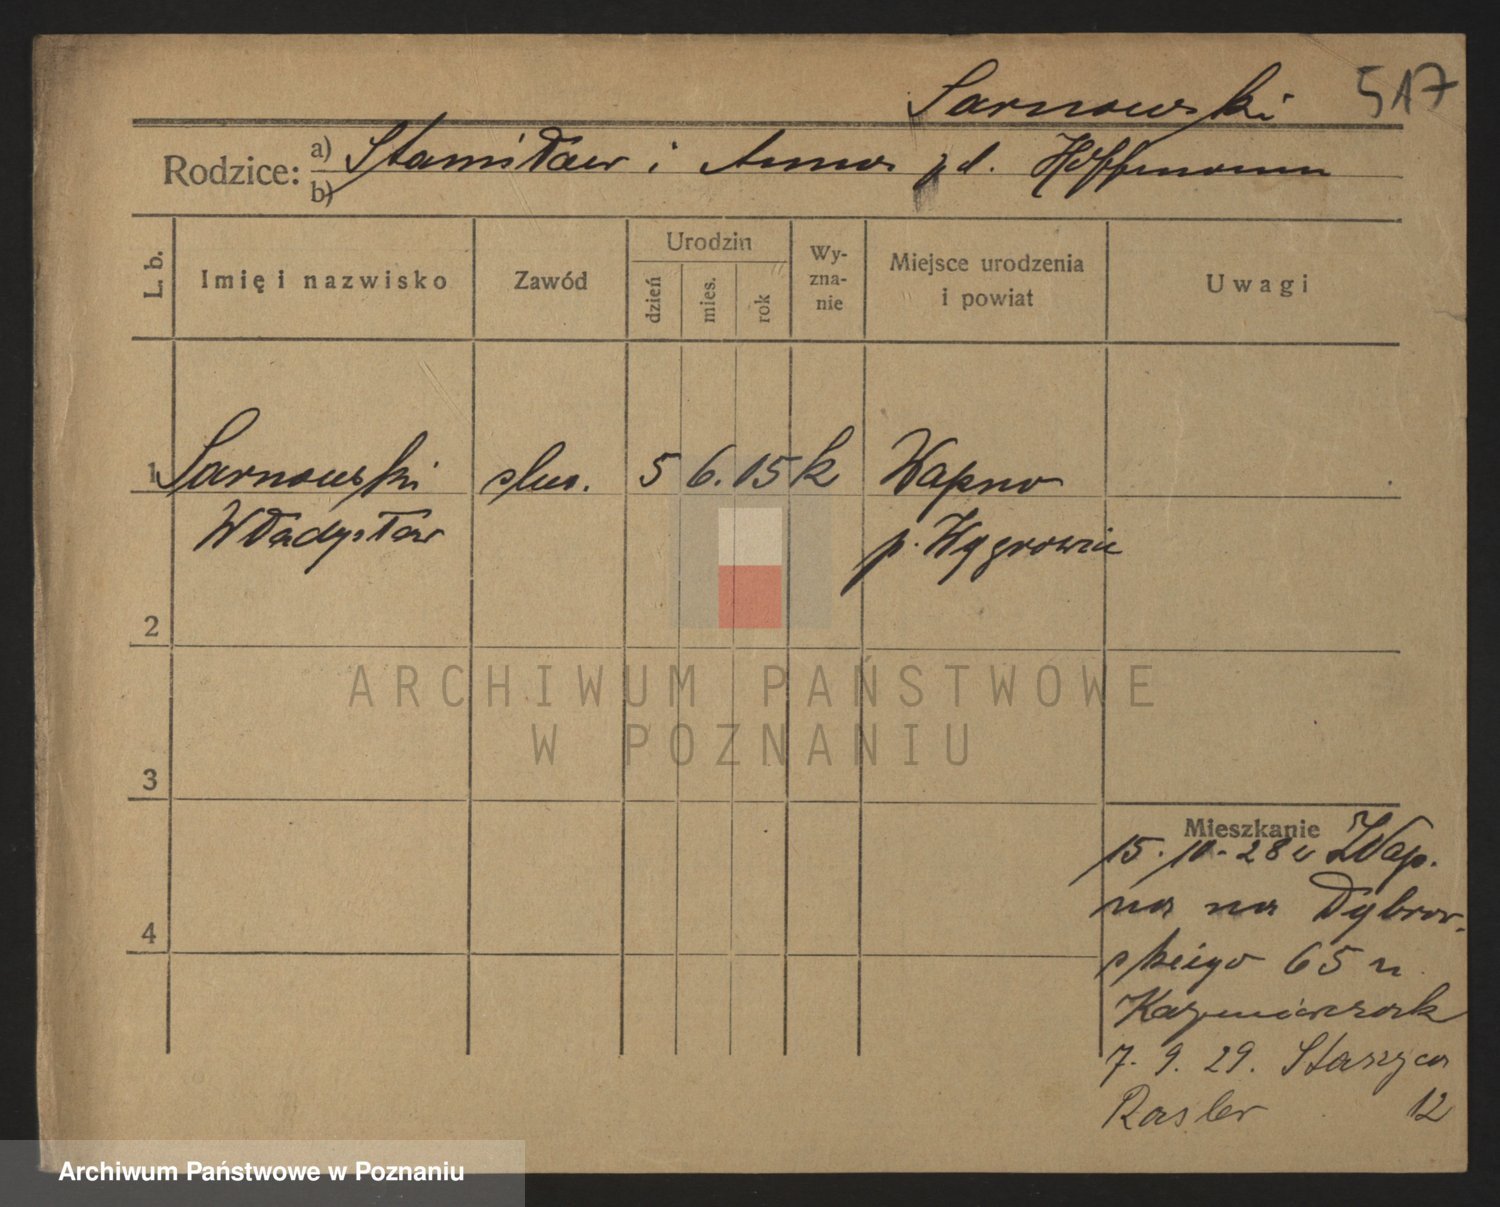 Sarnowski 517
Rodzice: a) Stanisław i Anna zd. Hoffmann
b)
L. b.
Imię i nazwisko
Zawód
Urodzin
dzień
mies.
rok
Wy-
zna-
nie
Miejsce urodzenia
i powiat
Uwagi
1 Sarnowski ślus. 5 6. 15 k Wapno
Władysław p. Wągrowiec
2
3
4
Mieszkanie
15. 10. 28 z Wap.
na na Dąbrow.
skiego 65 u
Kaźmierczak
7. 9. 29. Staszyca
Rasler 12
ARCHIWUM PAŃSTWOWE
W POZNANIU
Archiwum Państwowe w Poznaniu